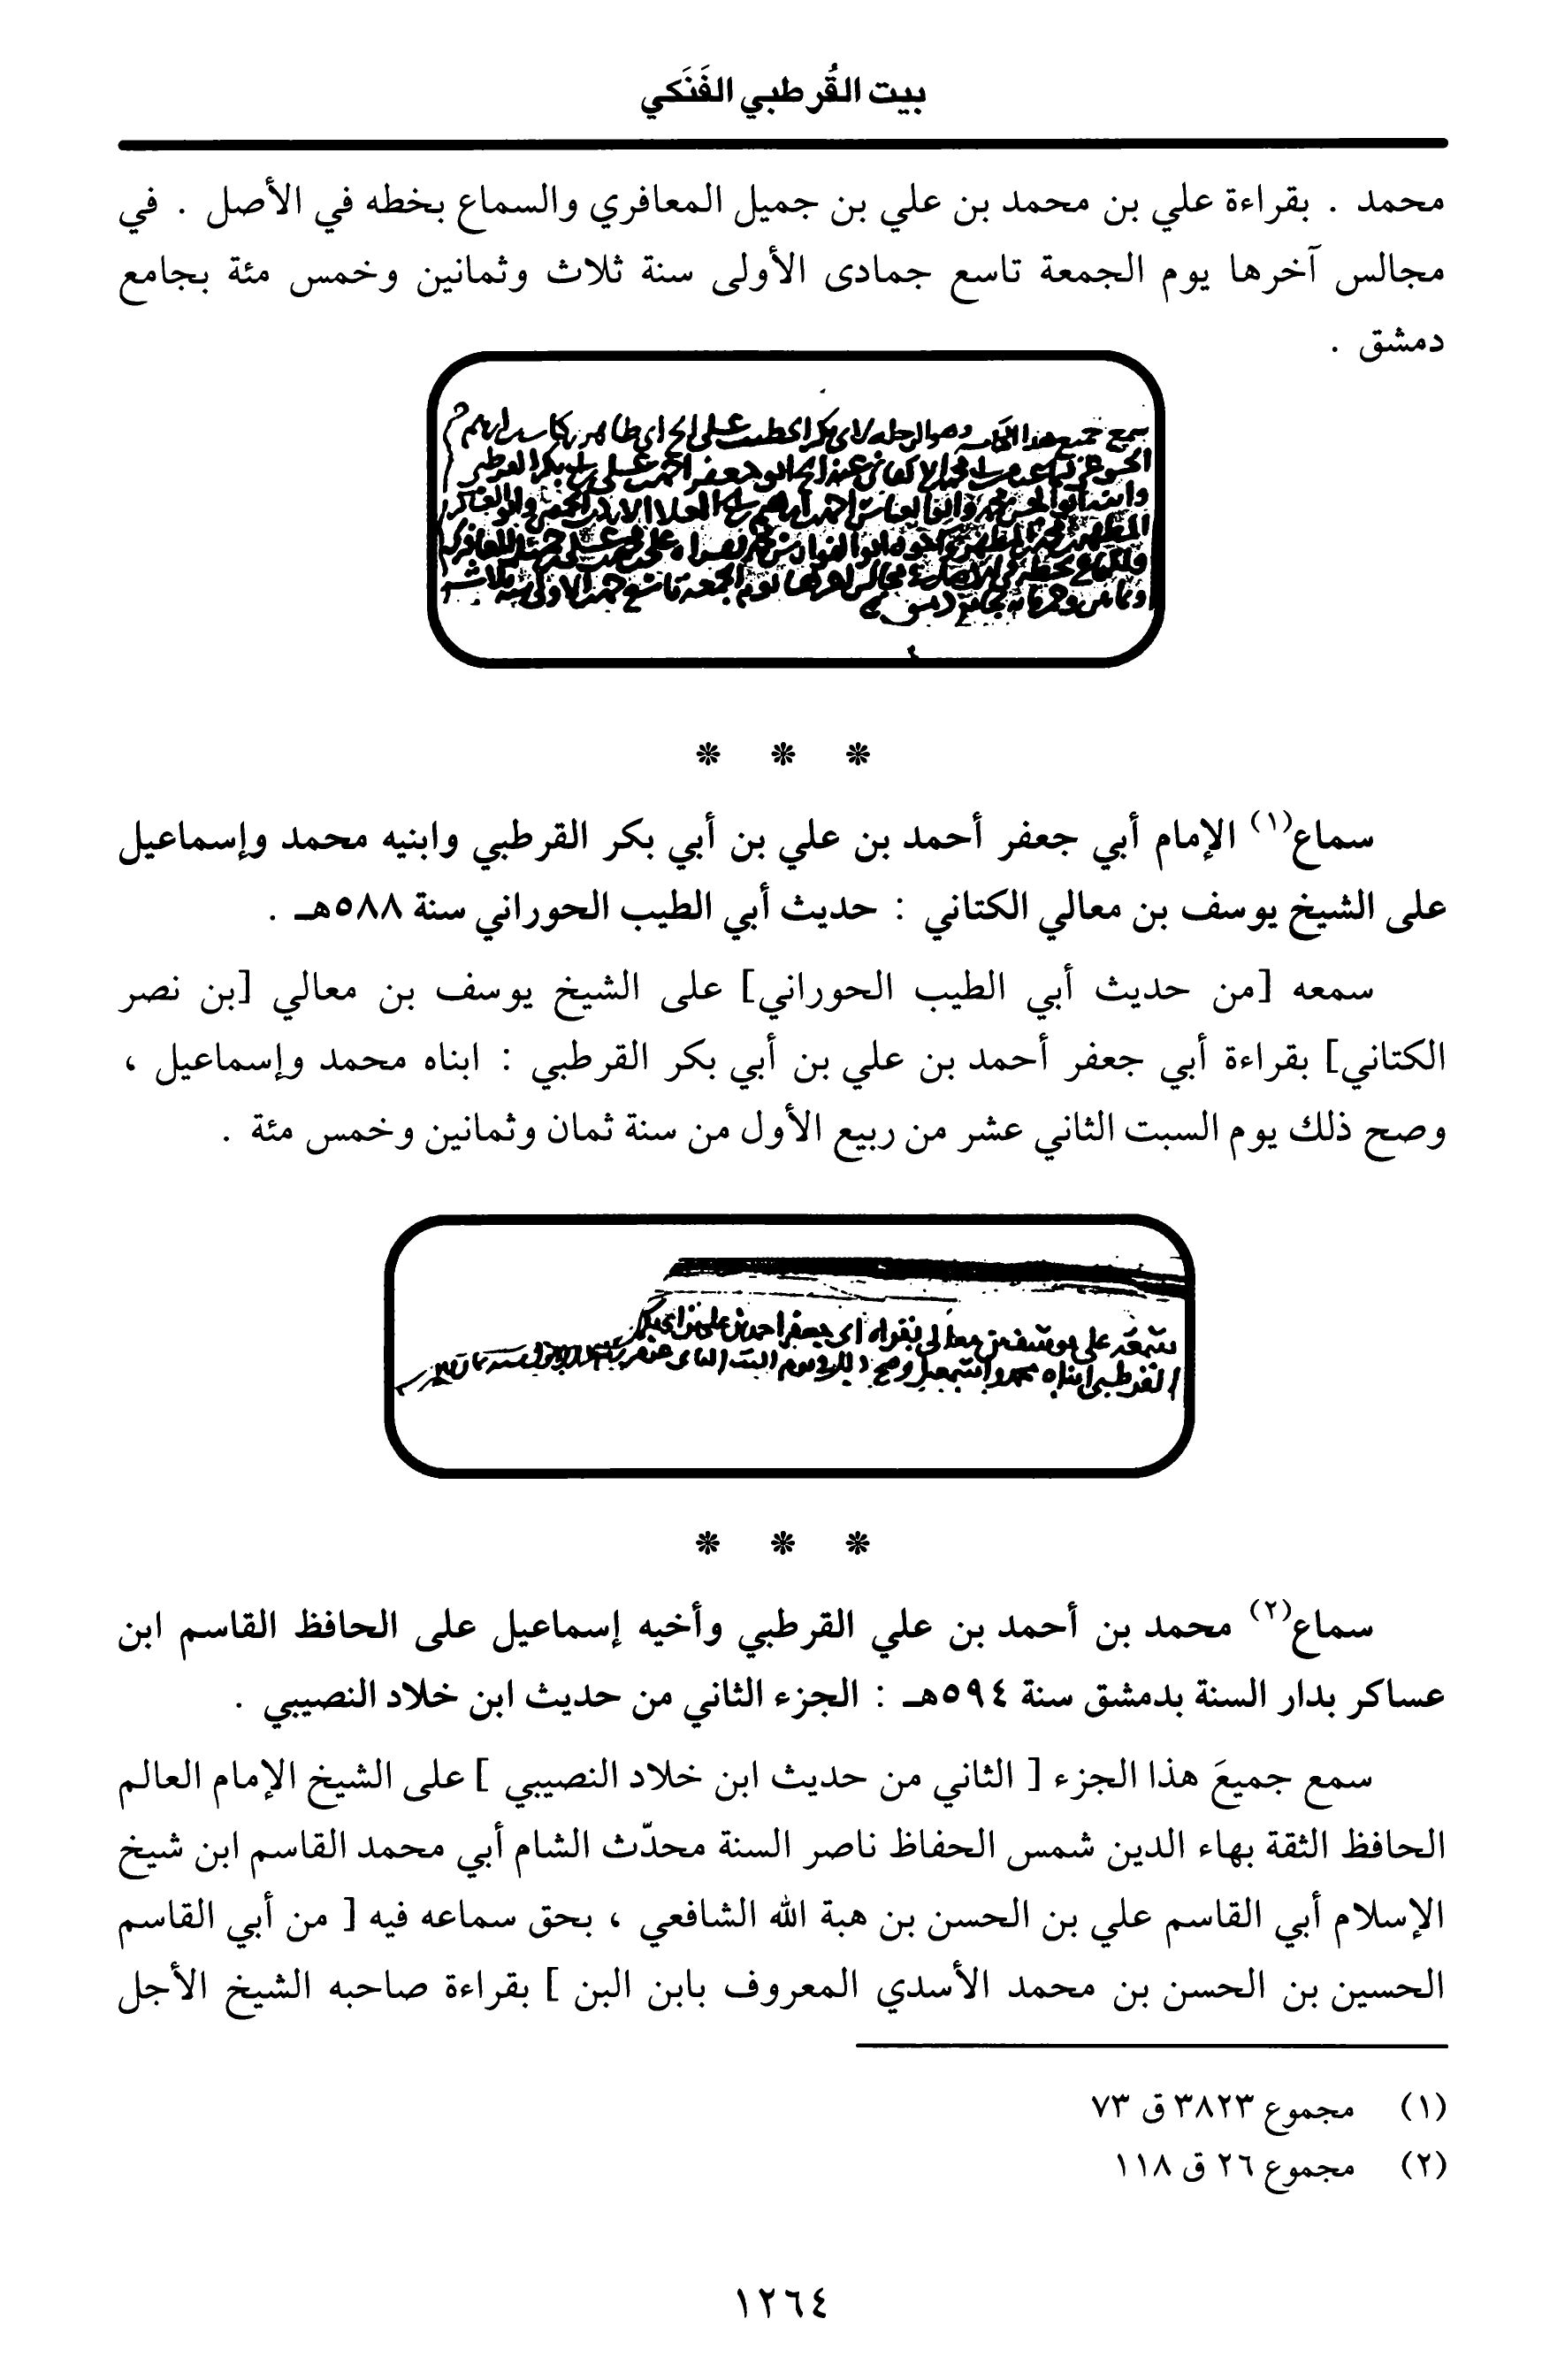 بيت القُرطبي الفَنَكي
محمد . بقراءة علي بن محمد بن علي بن جميل المعافري والسماع بخطه في الأصل . في
مجالس آخرها يوم الجمعة تاسع جمادى الأولى سنة ثلاث وثمانين وخمس مئة بجامع
دمشق .
سمع جميع هذا
* * *
سماع(١) الإمام أبي جعفر أحمد بن علي بن أبي بكر القرطبي وابنيه محمد وإسماعيل
على الشيخ يوسف بن معالي الكتاني : حديث أبي الطيب الحوراني سنة ٥٨٨هـ .
سمعه [من حديث أبي الطيب الحوراني] على الشيخ يوسف بن معالي [بن نصر
الكتاني] بقراءة أبي جعفر أحمد بن علي بن أبي بكر القرطبي : ابناه محمد وإسماعيل ،
وصح ذلك يوم السبت الثاني عشر من ربيع الأول من سنة ثمان وثمانين وخمس مئة .
سمعه على يوسف بن معالى بقراه ابى جعفر احمد بن على بن ابى بكر
القرطبى ابناه محمد واسمعيل وصح ذلك يوم السبت الثانى عشر
* * *
سماع(٢) محمد بن أحمد بن علي القرطبي وأخيه إسماعيل على الحافظ القاسم ابن
عساكر بدار السنة بدمشق سنة ٥٩٤هـ : الجزء الثاني من حديث ابن خلاد النصيبي .
سمع جميعَ هذا الجزء [ الثاني من حديث ابن خلاد النصيبي ] على الشيخ الإمام العالم
الحافظ الثقة بهاء الدين شمس الحفاظ ناصر السنة محدّث الشام أبي محمد القاسم ابن شيخ
الإسلام أبي القاسم علي بن الحسن بن هبة الله الشافعي ، بحق سماعه فيه [ من أبي القاسم
الحسين بن الحسن بن محمد الأسدي المعروف بابن البن ] بقراءة صاحبه الشيخ الأجل
(١) مجموع ٣٨٢٣ ق ٧٣
(٢) مجموع ٢٦ ق ١١٨
١٢٦٤